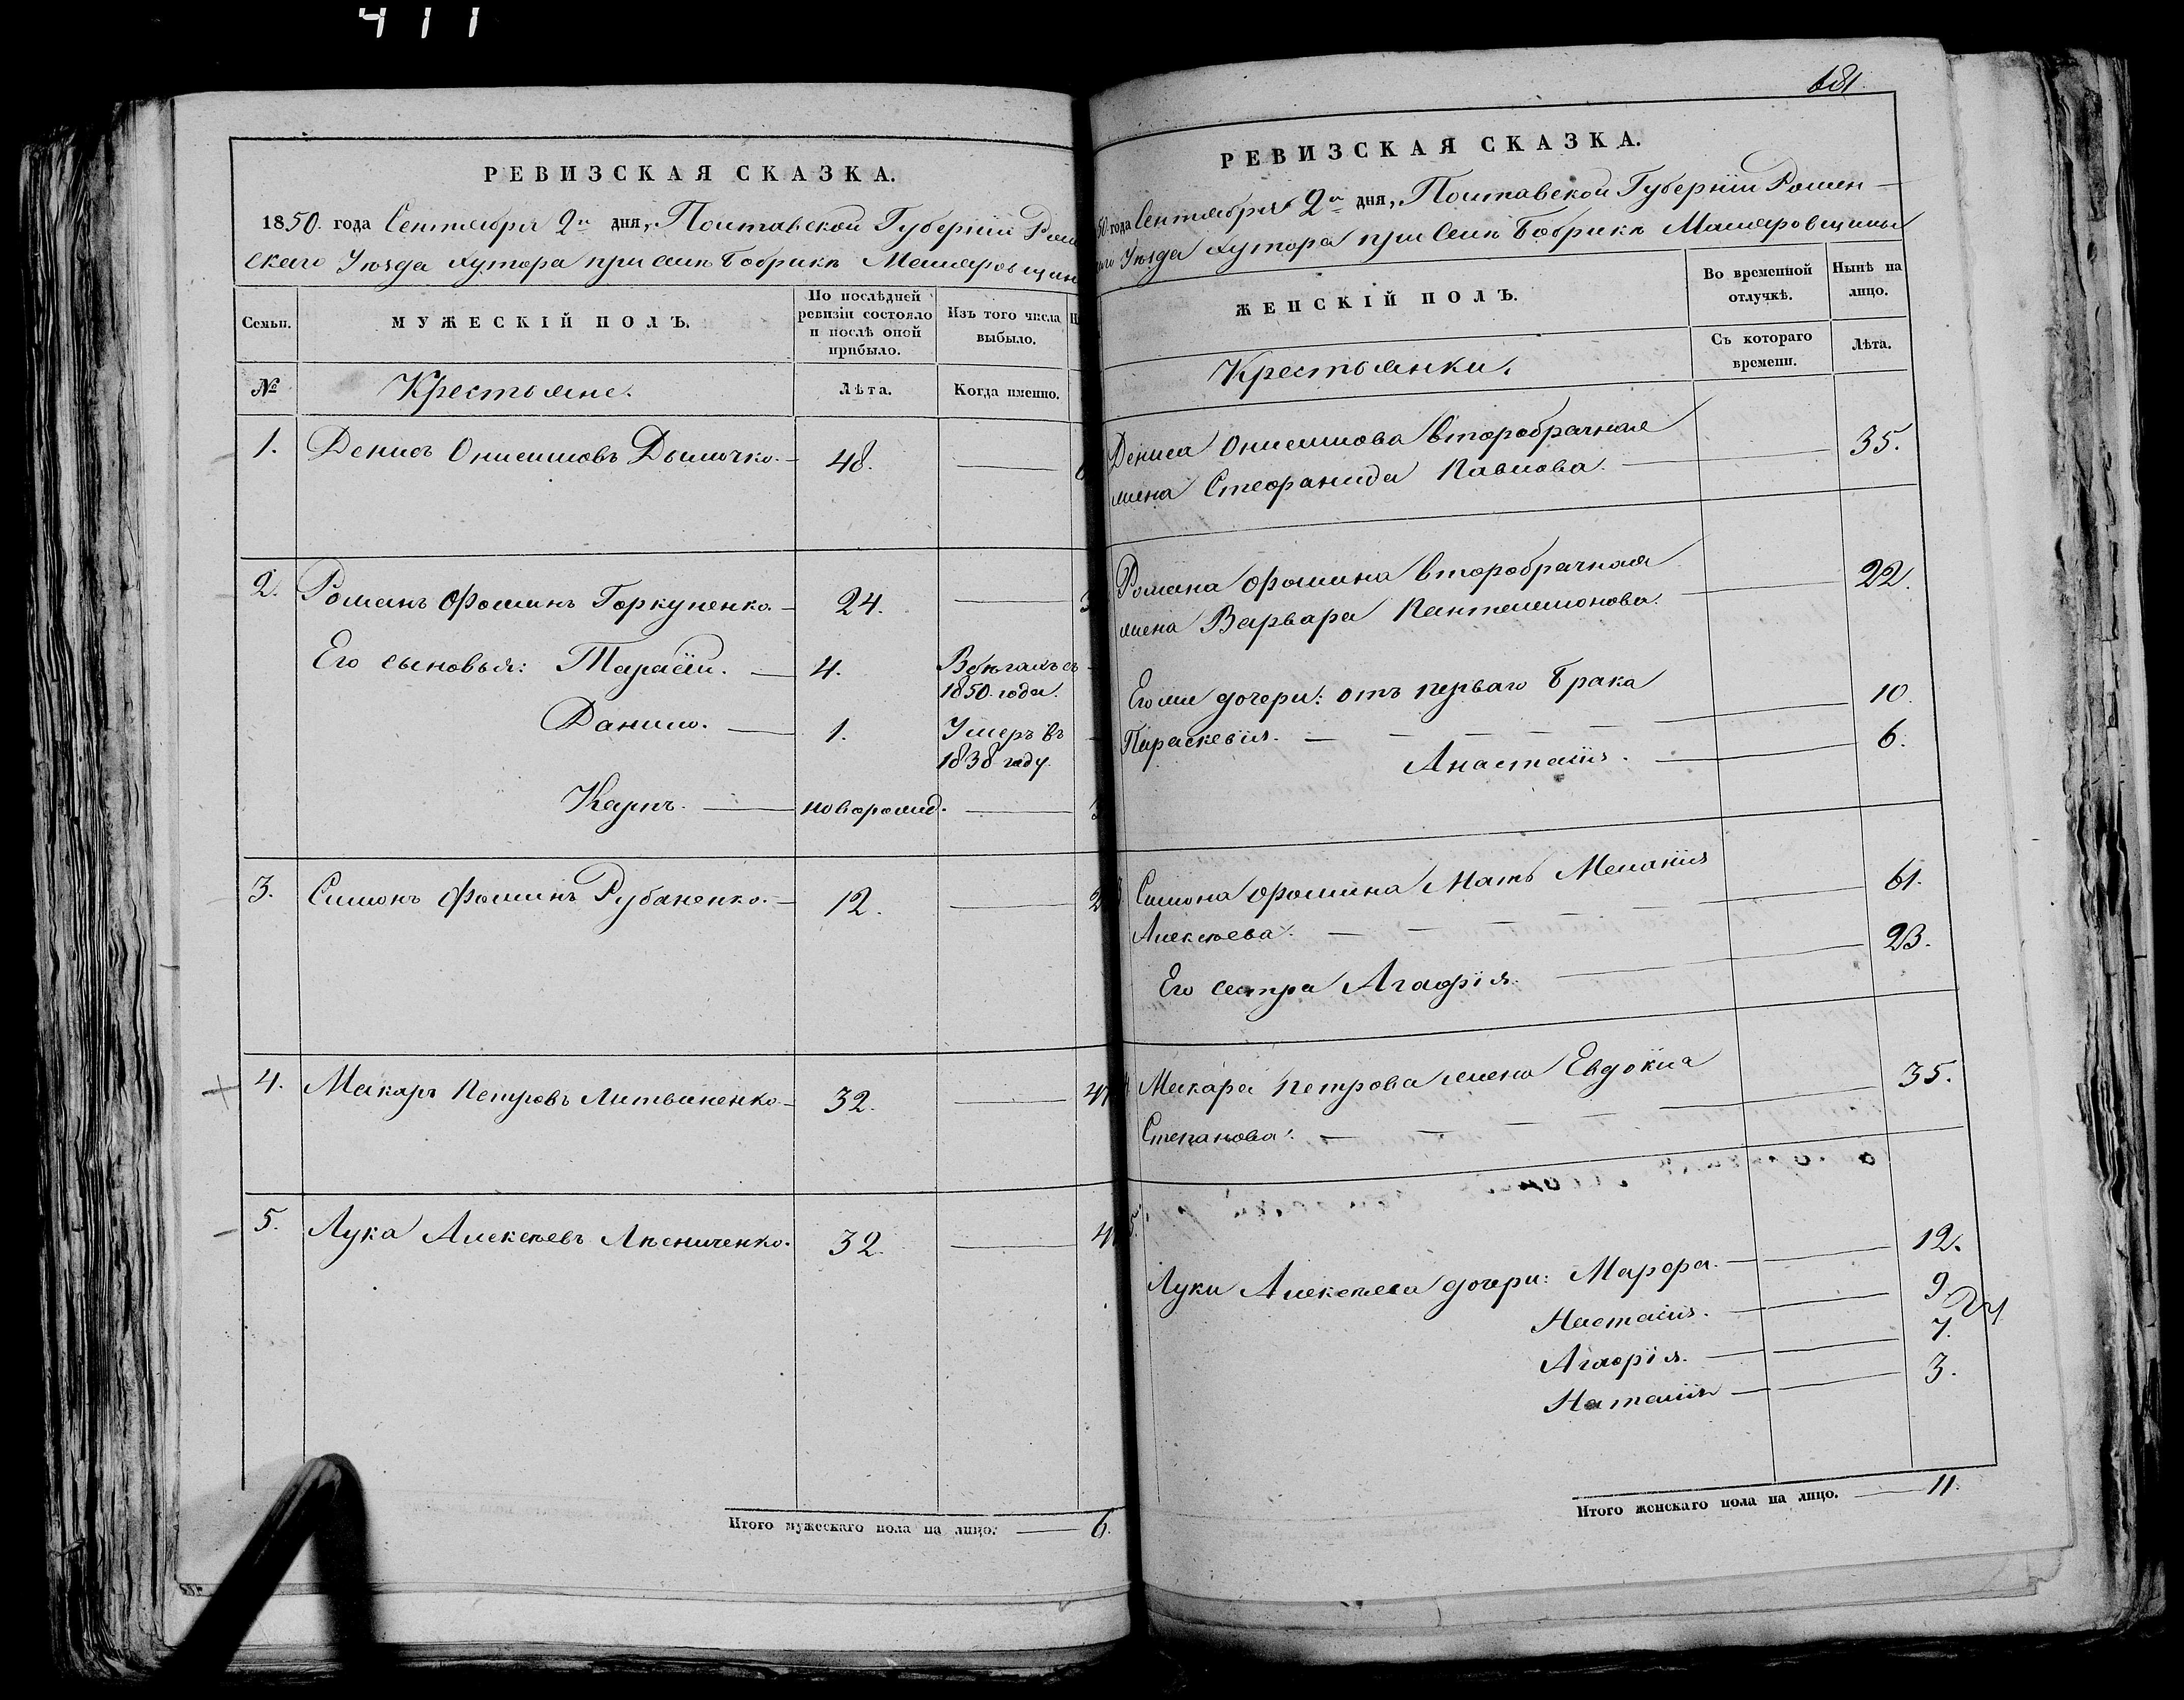 411
РЕВИЗСКАЯ СКАЗКА.
1850. года Сентября 2го дня, Полтавской Губерніи Ром
скаго Уѣзда Хутора при селѣ Бобрикѣ
Семьи.
МУЖЕСКІЙ ПОЛЪ.
По послѣдней ревизіи состояло и послѣ оной прибыло.
Изъ того числа выбыло.
№
Крестьяне.
Лѣта.
Когда именно.
1. Денисъ Онисимовъ 48.
2. Романъ Фоминъ Горкуненко. 24.
Его сыновья: Тарасій. 4. В бѣгахъ съ
1850. года.
Данило. 1. Умеръ въ
1838 году.
Карпъ. новорожд.
3. Симонъ Фоминъ Рубаненко. 12.
4. Макаръ Петровъ Литвиненко. 32.
5. Лука Алексѣевъ Лѣсниченко. 32.
Итого мужескаго пола на лицо. 6.
681.
РЕВИЗСКАЯ СКАЗКА.
50. года Сентября 2го дня, Полтавской Губерніи Ромен
Уѣзда Хутора при Селѣ Бобрикѣ
ЖЕНСКІЙ ПОЛЪ.
Во временной отлучкѣ.
Нынѣ на лицо.
Крестьянки.
Съ котораго времени.
Лѣта.
Дениса Онисимова второбрачная
жена Стефанида Павлова. 35.
Романа Фомина второбрачная
жена Варвара Пантелимонова. 22.
Его же дочери: отъ перваго брака
Параскевія. 10.
Анастасія. 6.
Симона Фомина Мать Меланія
Алексѣева. 61.
Его сестра Агафія. 23.
Макара Петрова жена Евдокіа
Степанова. 35.
5.
Луки Алексѣева дочери: Марфа. 12.
Настасія. 9.
Агафія. 7.
Наталія 3.
Итого женскаго пола на лицо. 11.